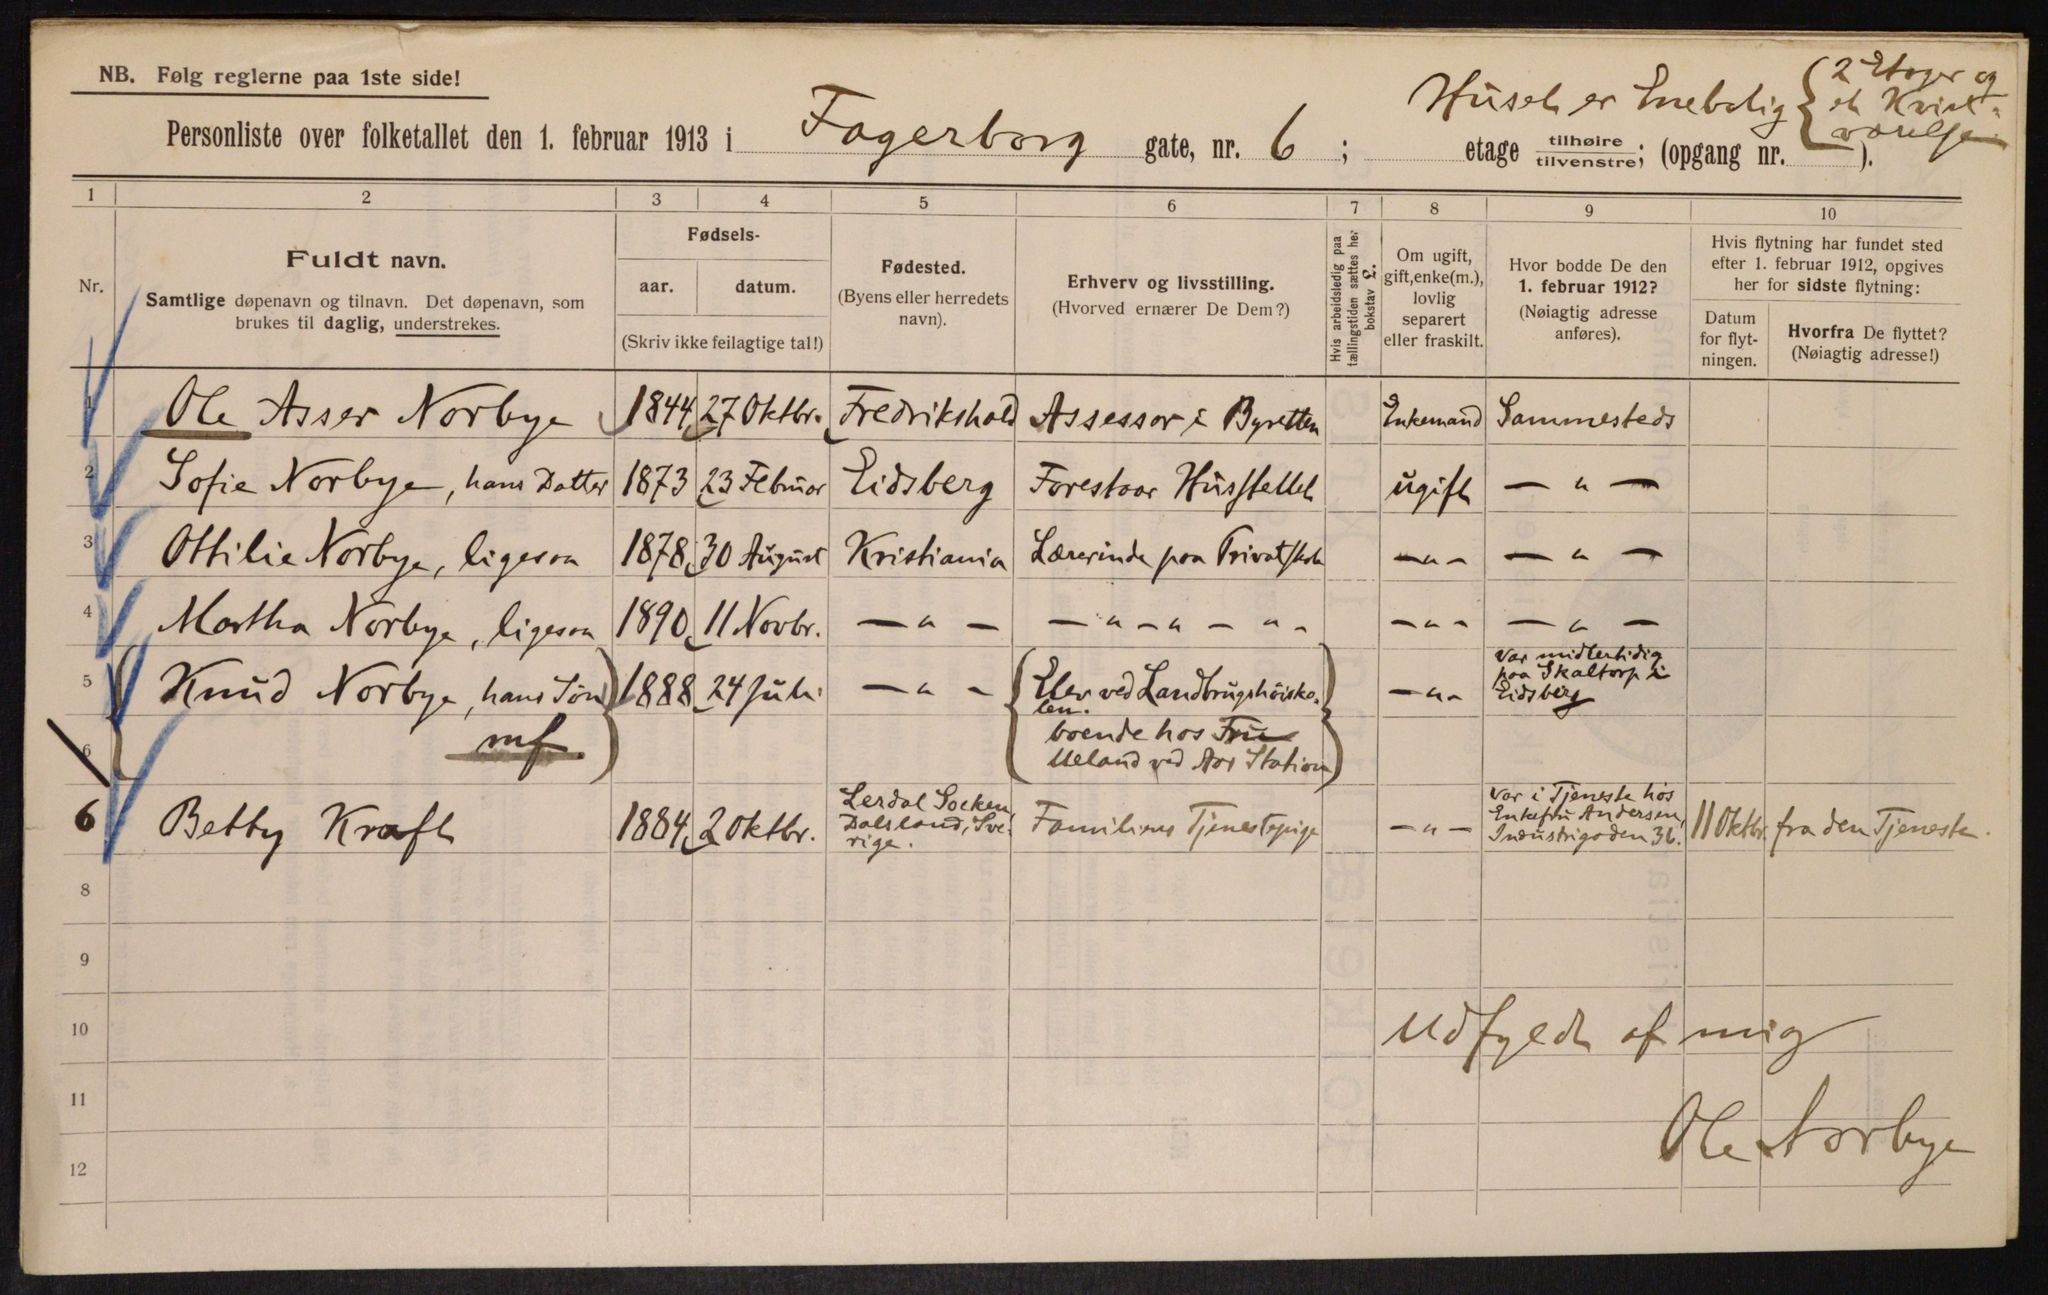 NB. Følg reglerne paa 1ste side!
Huset er Enebolig { 2 Etager og
et Kvist-
værelse.
Personliste over folketallet den 1. februar 1913 i Fagerborg gate, nr. 6 ; etage tilhøire / tilvenstre; (opgang nr. ).
1 2 3 4 5 6 7 8 9 10
Nr.
Fuldt navn.
Samtlige døpenavn og tilnavn. Det døpenavn, som
brukes til daglig, understrekes.
Fødsels-
aar. datum.
(Skriv ikke feilagtige tal!)
Fødested.
(Byens eller herredets
navn).
Erhverv og livsstilling.
(Hvorved ernærer De Dem?)
Hvis arbeidsledig paa
tællingstiden sættes her
bokstav L.
Om ugift,
gift, enke(m.),
lovlig
separert
eller fraskilt.
Hvor bodde De den
1. februar 1912?
(Nøiagtig adresse
anføres).
Hvis flytning har fundet sted
efter 1. februar 1912, opgives
her for sidste flytning:
Datum
for flyt-
ningen.
Hvorfra De flyttet?
(Nøiagtig adresse!)
1 Ole Asser Norbye 1844 27 Oktbr. Fredrikshald Assessor i Byretten Enkemand Sammesteds
2 Sofie Norbye, hans Datter 1873 23 Februar Eidsberg Forestaar Husstellet ugift — " —
3 Ottilie Norbye, ligesaa 1878 30 August Kristiania Lærerinde paa Privatskole — " — — " —
4 Martha Norbye, ligesaa 1890 11 Novbr. — " — — " — " — " — — " — — " —
5 Knud Norbye, hans Søn 1888 24 Juli — " — Elev ved Landbrugshöisko-
len.
— " — Var midlertidig
paa Skaltorp i
Eidsberg
6 mf boende hos Fru
Ueland ved Aas Station
6 Betty Kraft 1884 2 Oktbr. Lerdal Socken,
Dalsland, Sve-
rige.
Familiens Tjenestepige — " — Var i Tjeneste hos
Enkefru Andersen,
Industrigaden 36.
11 Oktbr. fra den Tjeneste.
8
9
10 Udfyldt af mig
11 Ole Norbye
12